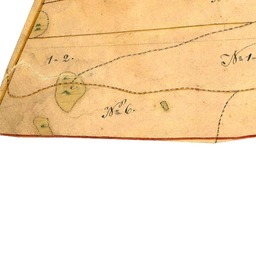 1-2.
No 1-
No 6.